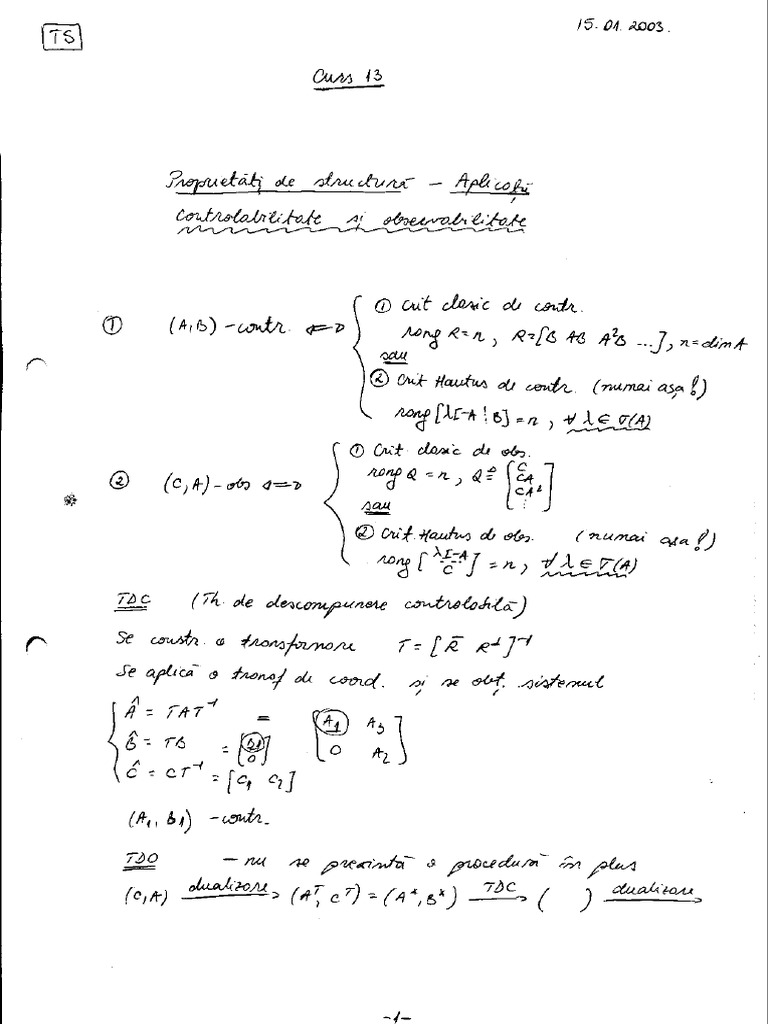 TS
15.01.2003.
Curs 13
Proprietăți de structură – Aplicații
Controlabilitate și observabilitate
① (A,B) – contr. ⇐⇒
① Crit clasic de contr.
rang R = n, R = [B AB A²B ...], n = dim A
sau
② Crit Hautus de contr. (numai așa!)
rang [λI-A ⋮ B] = n, ∀ λ ∈ σ(A)
② (C,A) – obs ⇐⇒
① Crit. clasic de obs.
rang Q = n, Q ≜ [C CA CA² ⋮]
sau
② Crit. Hautus de obs. (numai așa!)
rang [λI-A / C] = n, ∀ λ ∈ σ(A)
TDC (Th. de descompunere controlabilă)
Se constr. o transformare T = [R̄ R⊥]⁻¹
Se aplică o transf de coord. și se obț. sistemul
Â = TAT⁻¹ = [A₁ A₃ / 0 A₂]
B̂ = TB = [B1 / 0]
Ĉ = CT⁻¹ = [C₁ C₂]
(A₁, B₁) – contr.
TDO – nu se prezintă o procedură în plus
(C,A) dualizare→ (Aᵀ, Cᵀ) = (A*, B*) TDC→ ( ) dualizare→
-1-